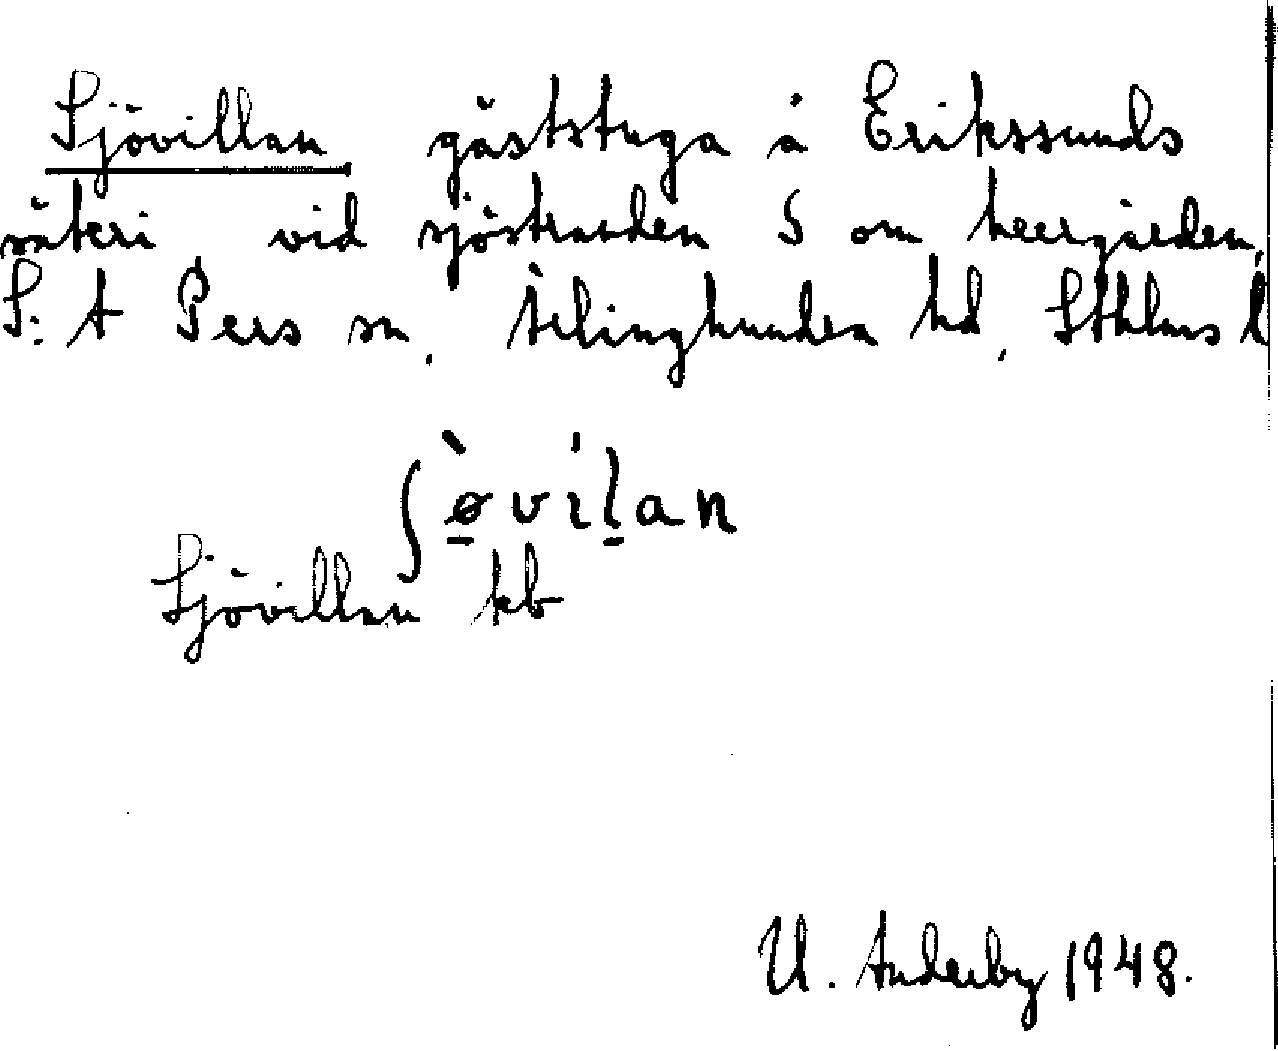 Sjövillan gäststuga å Erikssunds
säteri vid sjöstranden S om herrgården,
S:t Pers sn, Ærlinghundra hd, Sthlms l
ʃòvíl̠an
Sjövillan kb
U. Anderby 1948.